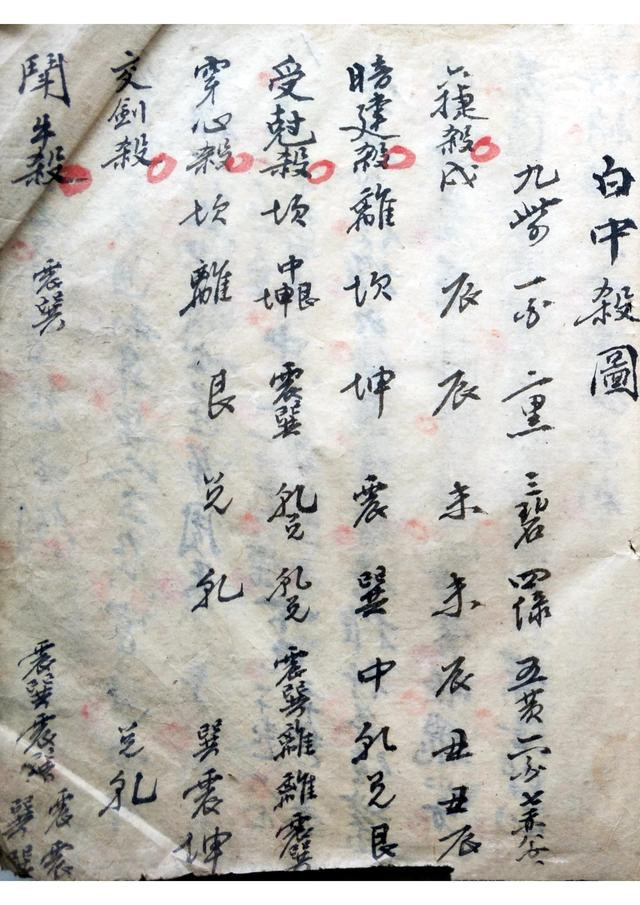 白中殺圖
九紫 一白 二黑 三碧 四綠 五黄 六白 七赤 八白
六捷殺 戌 辰 辰 未 未 辰 丑 丑 辰
暗建殺 離 坎 坤 震 巽 中 乹 兑 艮
受尅殺 坎 中坤艮 震巽 乹兑 乹兑 震巽 離 離 震巽
穿心殺 坎 離 艮 兑 乹 巽 震 坤
交劍殺 兑 乹
鬭牛殺 震巽 震巽 震 震 巽 震